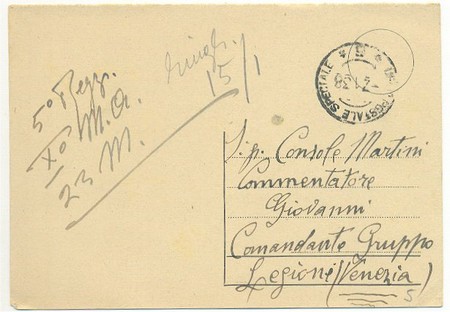 5° Regg.
X° M.A.
23 M.
15/1
UFFICIO POSTALE SPECIALE
S.p. Console Martini
Commentatore
Giovanni
Comandante Gruppo
Legioni (Venezia)
5